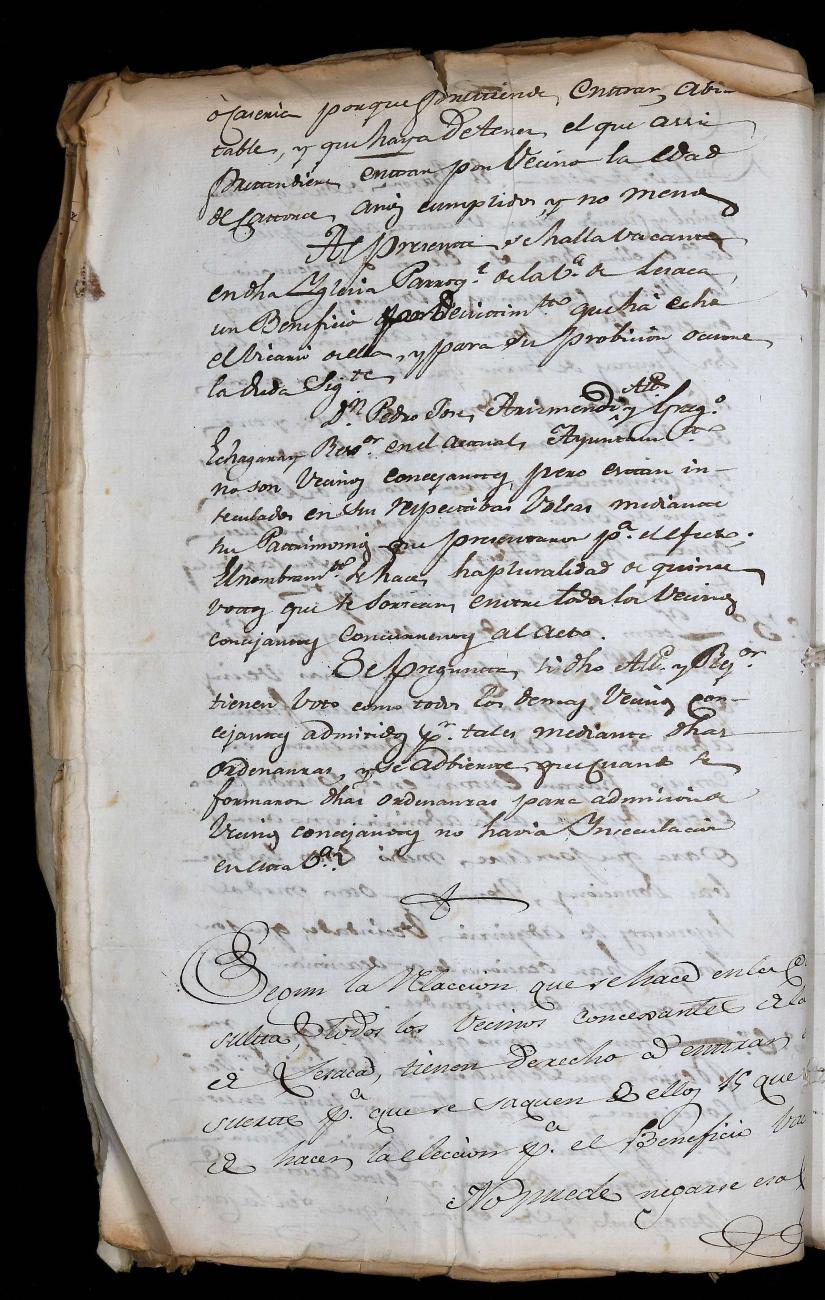 o Caseria porque prettiende entrar, abi-
table, y que haya de tener el que assi
prettendiere entrar por Vecino la edad
de Cattorce años cumplidos, y no menos
Al presente se halla vacante
en dha Yglesia Parroql de la Va de Lesaca,
un Beneficio por que ha
el Vicario de ella, y para su probision ocurre
la duda Sigte
Dn Pedro Jose Arizmendi Alce y
Echagaray Rexor en el actual Ayuntamto
no son Vecinos concejantes, pero estan in-
seculados en sus respectibas Volsas mediante
su Pattrimonio que presentaron pa el efecto.
El nombramto se hace ha pluralidad de quince
votos que se sortean entre todos los Vecinos
concejantes concurrentes al acto.
Se pregunta, si dho Alce y Rexor
tienen voto como todos los demas Vecinos con-
cejantes admitidos pr tales mediante dhas
ordenanzas, y se adbierte que quando se
formaron dhas ordenanzas para admision de
Vecinos concejantes no havia Ynseculacion
en esta Va
Segun la relaccion que se hace en la
sulta, todos los Vecinos concejantes de la
de Lesaca, tienen derecho a entrar
suerte pa que se saquen de ellos 15 que
de hacer la eleccion pa el Beneficio
No puede negarse esa